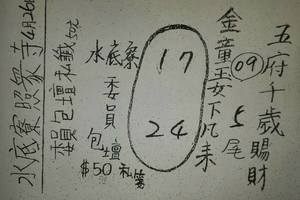 五府千歲賜財
金童玉女下凡来
09 5尾
17
24
水底寮委員包壇
$50 私簽
委員包壇私籤
水底寮照衆寺4月26日